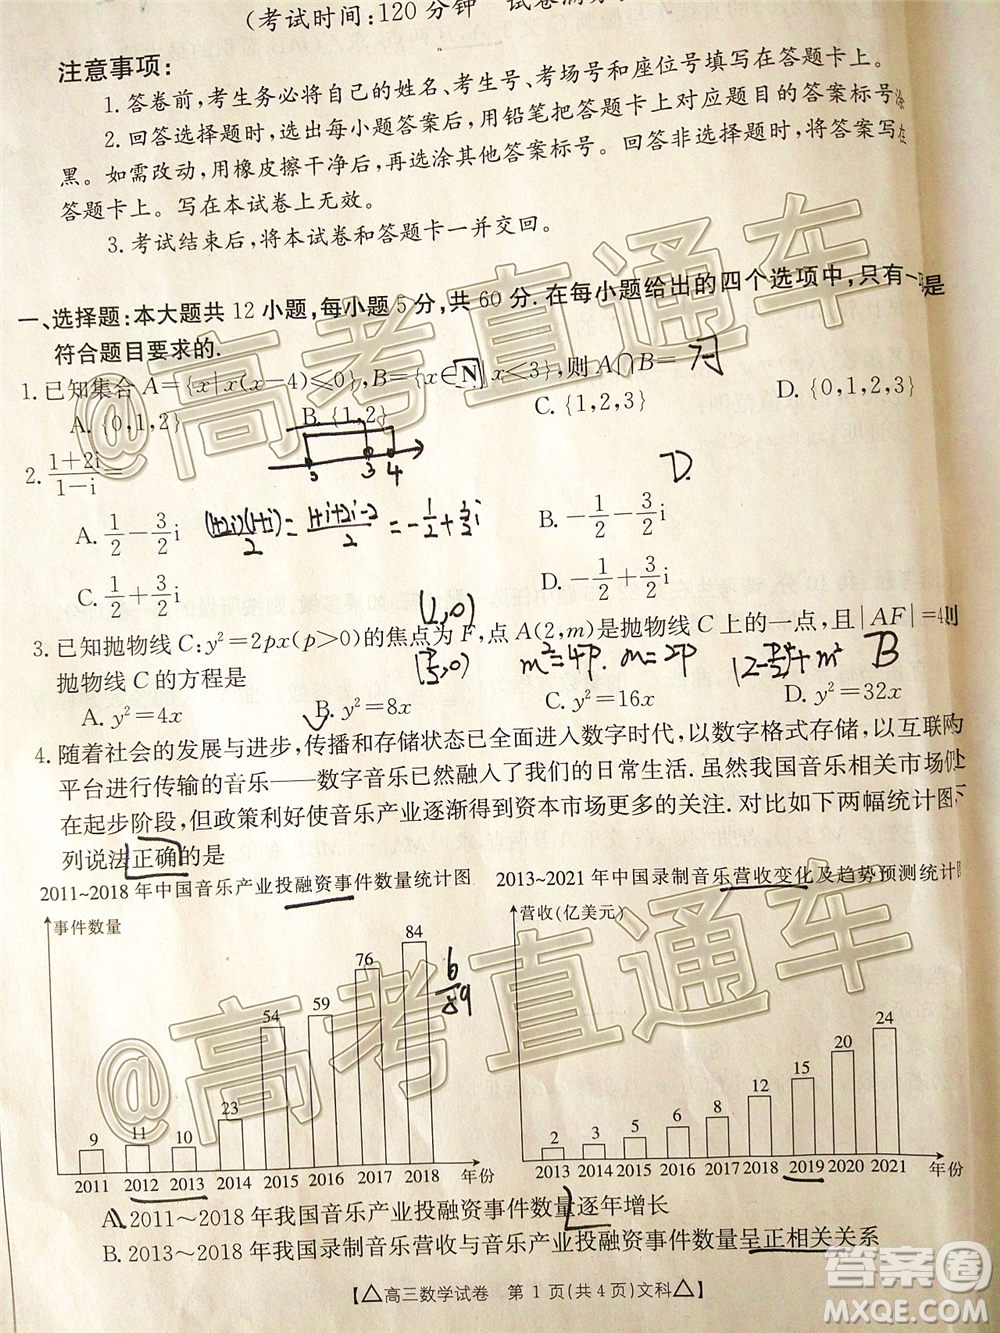 (考试时间:120分钟 试卷满分
注意事项:
1.答卷前,考生务必将自己的姓名、考生号、考场号和座位号填写在答题卡上。
2.回答选择题时,选出每小题答案后,用铅笔把答题卡上对应题目的答案标号涂
黑。如需改动,用橡皮擦干净后,再选涂其他答案标号。回答非选择题时,将答案写在
答题卡上。写在本试卷上无效。
3.考试结束后,将本试卷和答题卡一并交回。
一、选择题:本大题共12小题,每小题5分,共60分.在每小题给出的四个选项中,只有一项是
符合题目要求的.
1.已知集合A={x|x(x-4)≤0},B={x∈N|x≤3},则A∩B=
A.{0,1,2} B.{1,2} C.{1,2,3} D.{0,1,2,3}
0 3 4
2. (1+2i)/(1-i)=
D.
A. 1/2-3/2i B. -1/2-3/2i
(1+2i)(1+i)/2=1+i+2i-2/2=-1/2+3/2i
C. 1/2+3/2i D. -1/2+3/2i
(1,0)
3.已知抛物线C:y²=2px(p>0)的焦点为F,点A(2,m)是抛物线C上的一点,且|AF|=4,则
抛物线C的方程是
m²=4p. B
A.y²=4x B.y²=8x C.y²=16x D.y²=32x
4.随着社会的发展与进步,传播和存储状态已全面进入数字时代,以数字格式存储,以互联网为
平台进行传输的音乐——数字音乐已然融入了我们的日常生活.虽然我国音乐相关市场仍处
在起步阶段,但政策利好使音乐产业逐渐得到资本市场更多的关注.对比如下两幅统计图,下
列说法正确的是
2011~2018年中国音乐产业投融资事件数量统计图
事件数量
9 11 10 23 54 59 76 84
2011 2012 2013 2014 2015 2016 2017 2018 年份
6/89
2013~2021年中国录制音乐营收变化及趋势预测统计图
营收(亿美元)
2 3 5 6 8 12 15 20 24
2013 2014 2015 2016 2017 2018 2019 2020 2021 年份
A.2011~2018年我国音乐产业投融资事件数量逐年增长
B.2013~2018年我国录制音乐营收与音乐产业投融资事件数量呈正相关关系
【△高三数学试卷 第1页(共4页)文科△】
@高考直通车
@高考直通车
答案圈
MXQE.COM